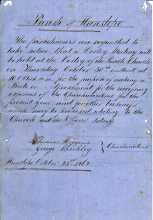 Parish of Hanslope
The parishioners are requested to
take notice that a Vestry Meeting will
be held at the Vestry of the Parish Church
in Hanslope October 30th next at
10 o'Clock a.m. for the purpose of making a
Rate or Assessment for the necessary
expenses of the Churchwardens for the
present year and for other business
which may be required relating to the
Church and the Parish
Thomas
George
Churchwardens
Hanslope October